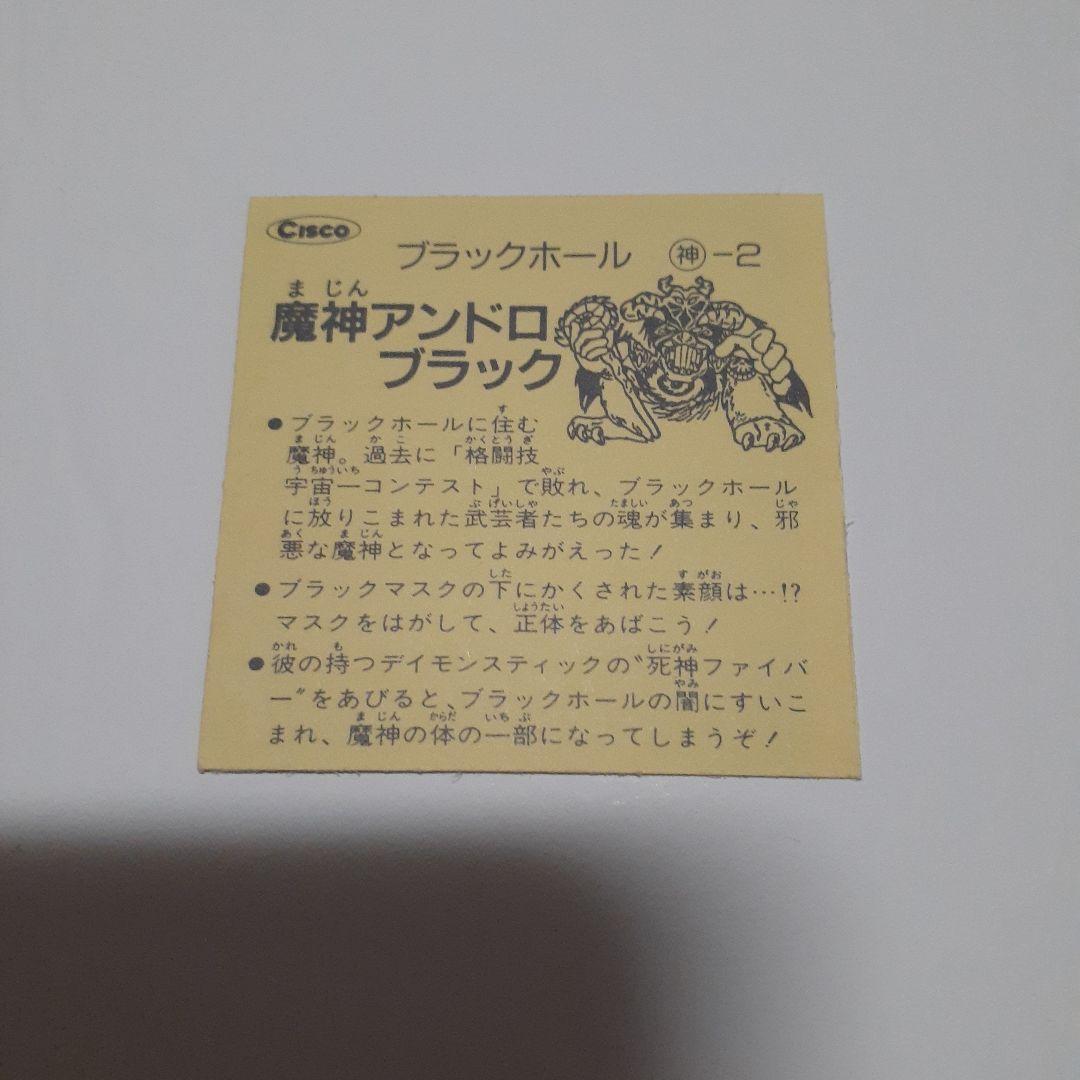 Cisco
ブラックホール ㊥-2
魔神アンドロ
ブラック
●ブラックホールに住む
魔神。過去に「格闘技
宇宙一コンテスト」で敗れ、ブラックホール
に放りこまれた武芸者たちの魂が集まり、邪
悪な魔神となってよみがえった！
●ブラックマスクの下にかくされた素顔は…!?
マスクをはがして、正体をあばこう！
●彼の持つデイモンスティックの〝死神ファイバ
ー〟をあびると、ブラックホールの闇にすいこ
まれ、魔神の体の一部になってしまうぞ！